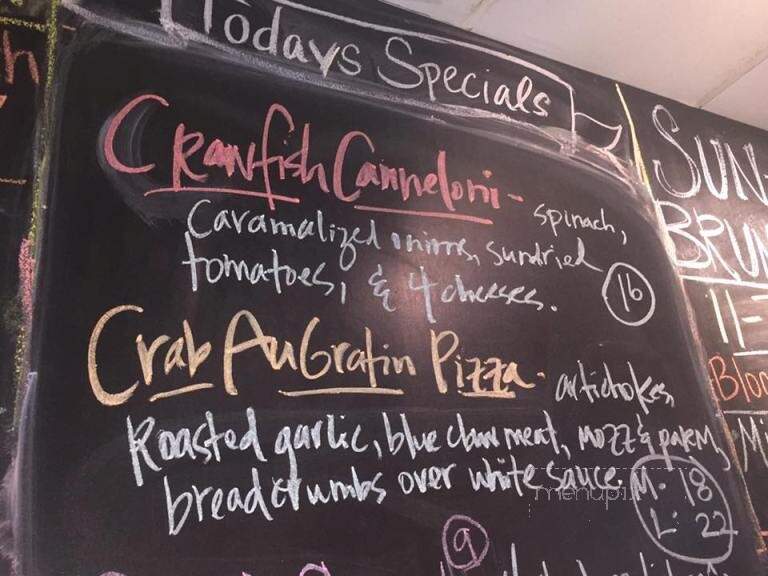 Todays Specials
Crawfish Canneloni - spinach,
Caramalized onions, sundried
tomatoes, & 4 cheeses. 16
Crab AuGratin Pizza - artichokes,
Roasted garlic, blue claw meat, mozz & parm,
breadcrumbs over white sauce M. 18
L. 22
9
SUN
BRUN
11-
Bloo
menupix